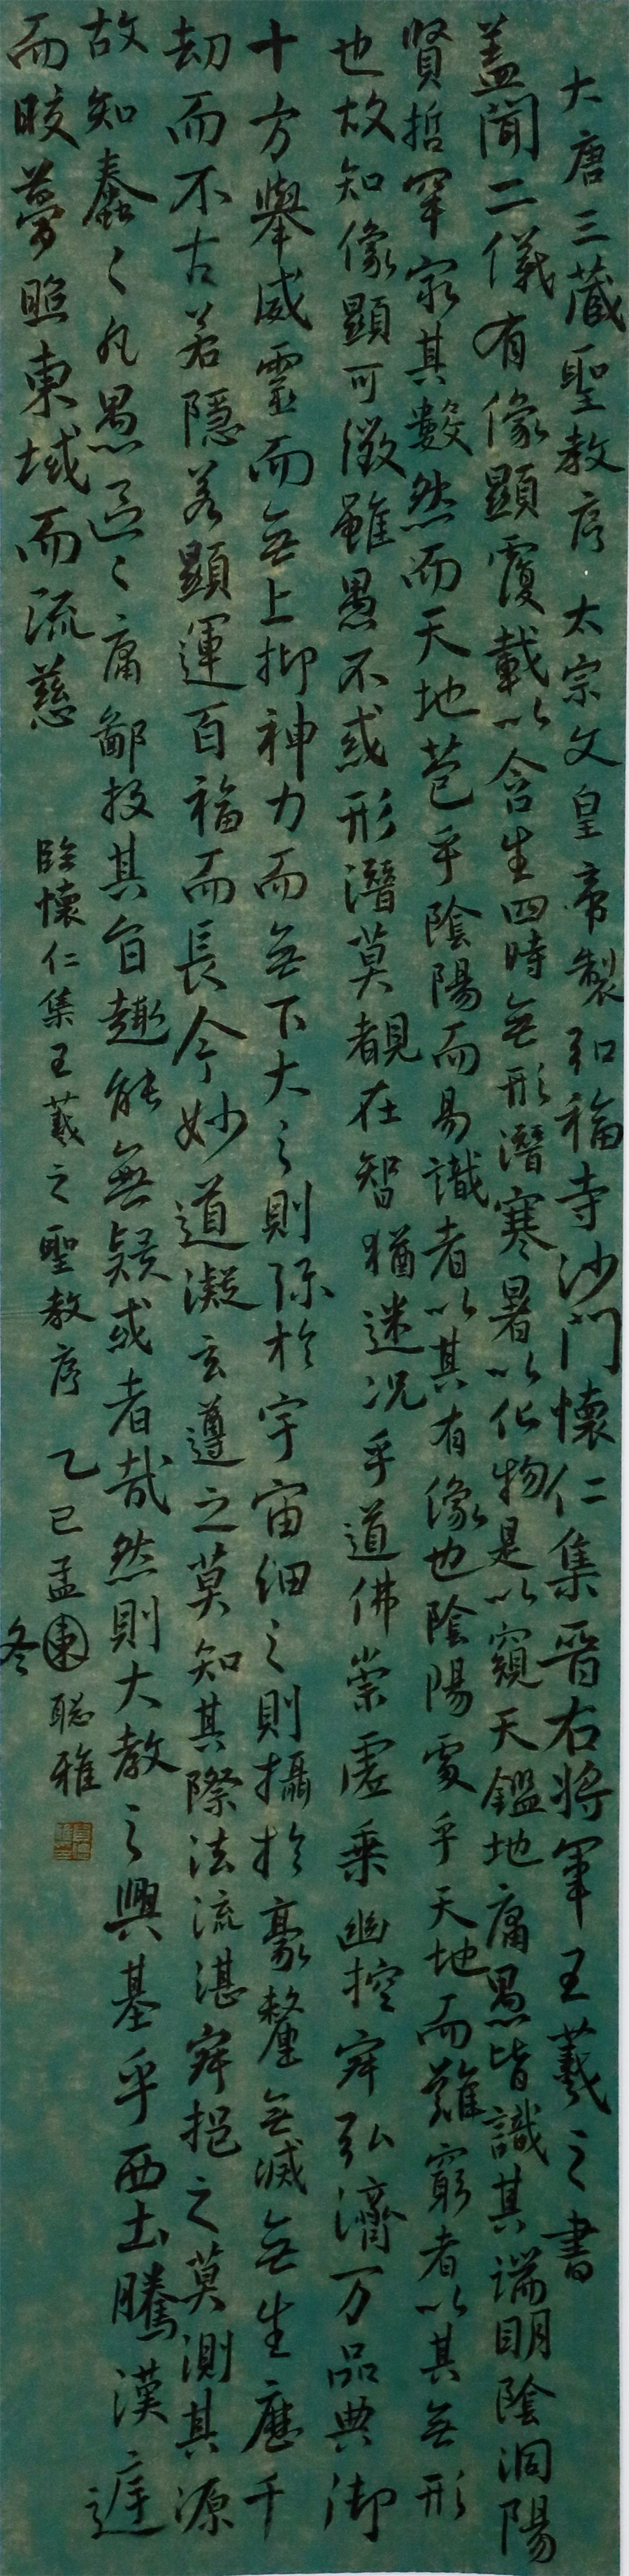 大唐三藏聖教序 太宗文皇帝製弘福寺沙門懷仁集晉右將軍王羲之書
蓋聞二儀有像顯覆載以含生四時無形潛寒暑以化物是以窺天鑑地庸愚皆識其端明陰洞陽
賢哲罕窮其數然而天地苞乎陰陽而易識者以其有像也陰陽處乎天地而難窮者以其無形
也故知像顯可徵雖愚不惑形潛莫覩在智猶迷況乎道佛崇虛乘幽控寂弘濟万品典御
十方舉威靈而無上抑神力而無下大之則弥於宇宙細之則攝於豪釐無滅無生歷千
劫而不古若隱若顯運百福而長今妙道凝玄遵之莫知其際法流湛寂挹之莫測其源
故知蠢々凡愚區々庸鄙投其旨趣能無疑或者哉然則大教之興基乎西土騰漢庭
而皎夢照東域而流慈
臨懷仁集王羲之聖教序 乙巳孟東聪雅
冬